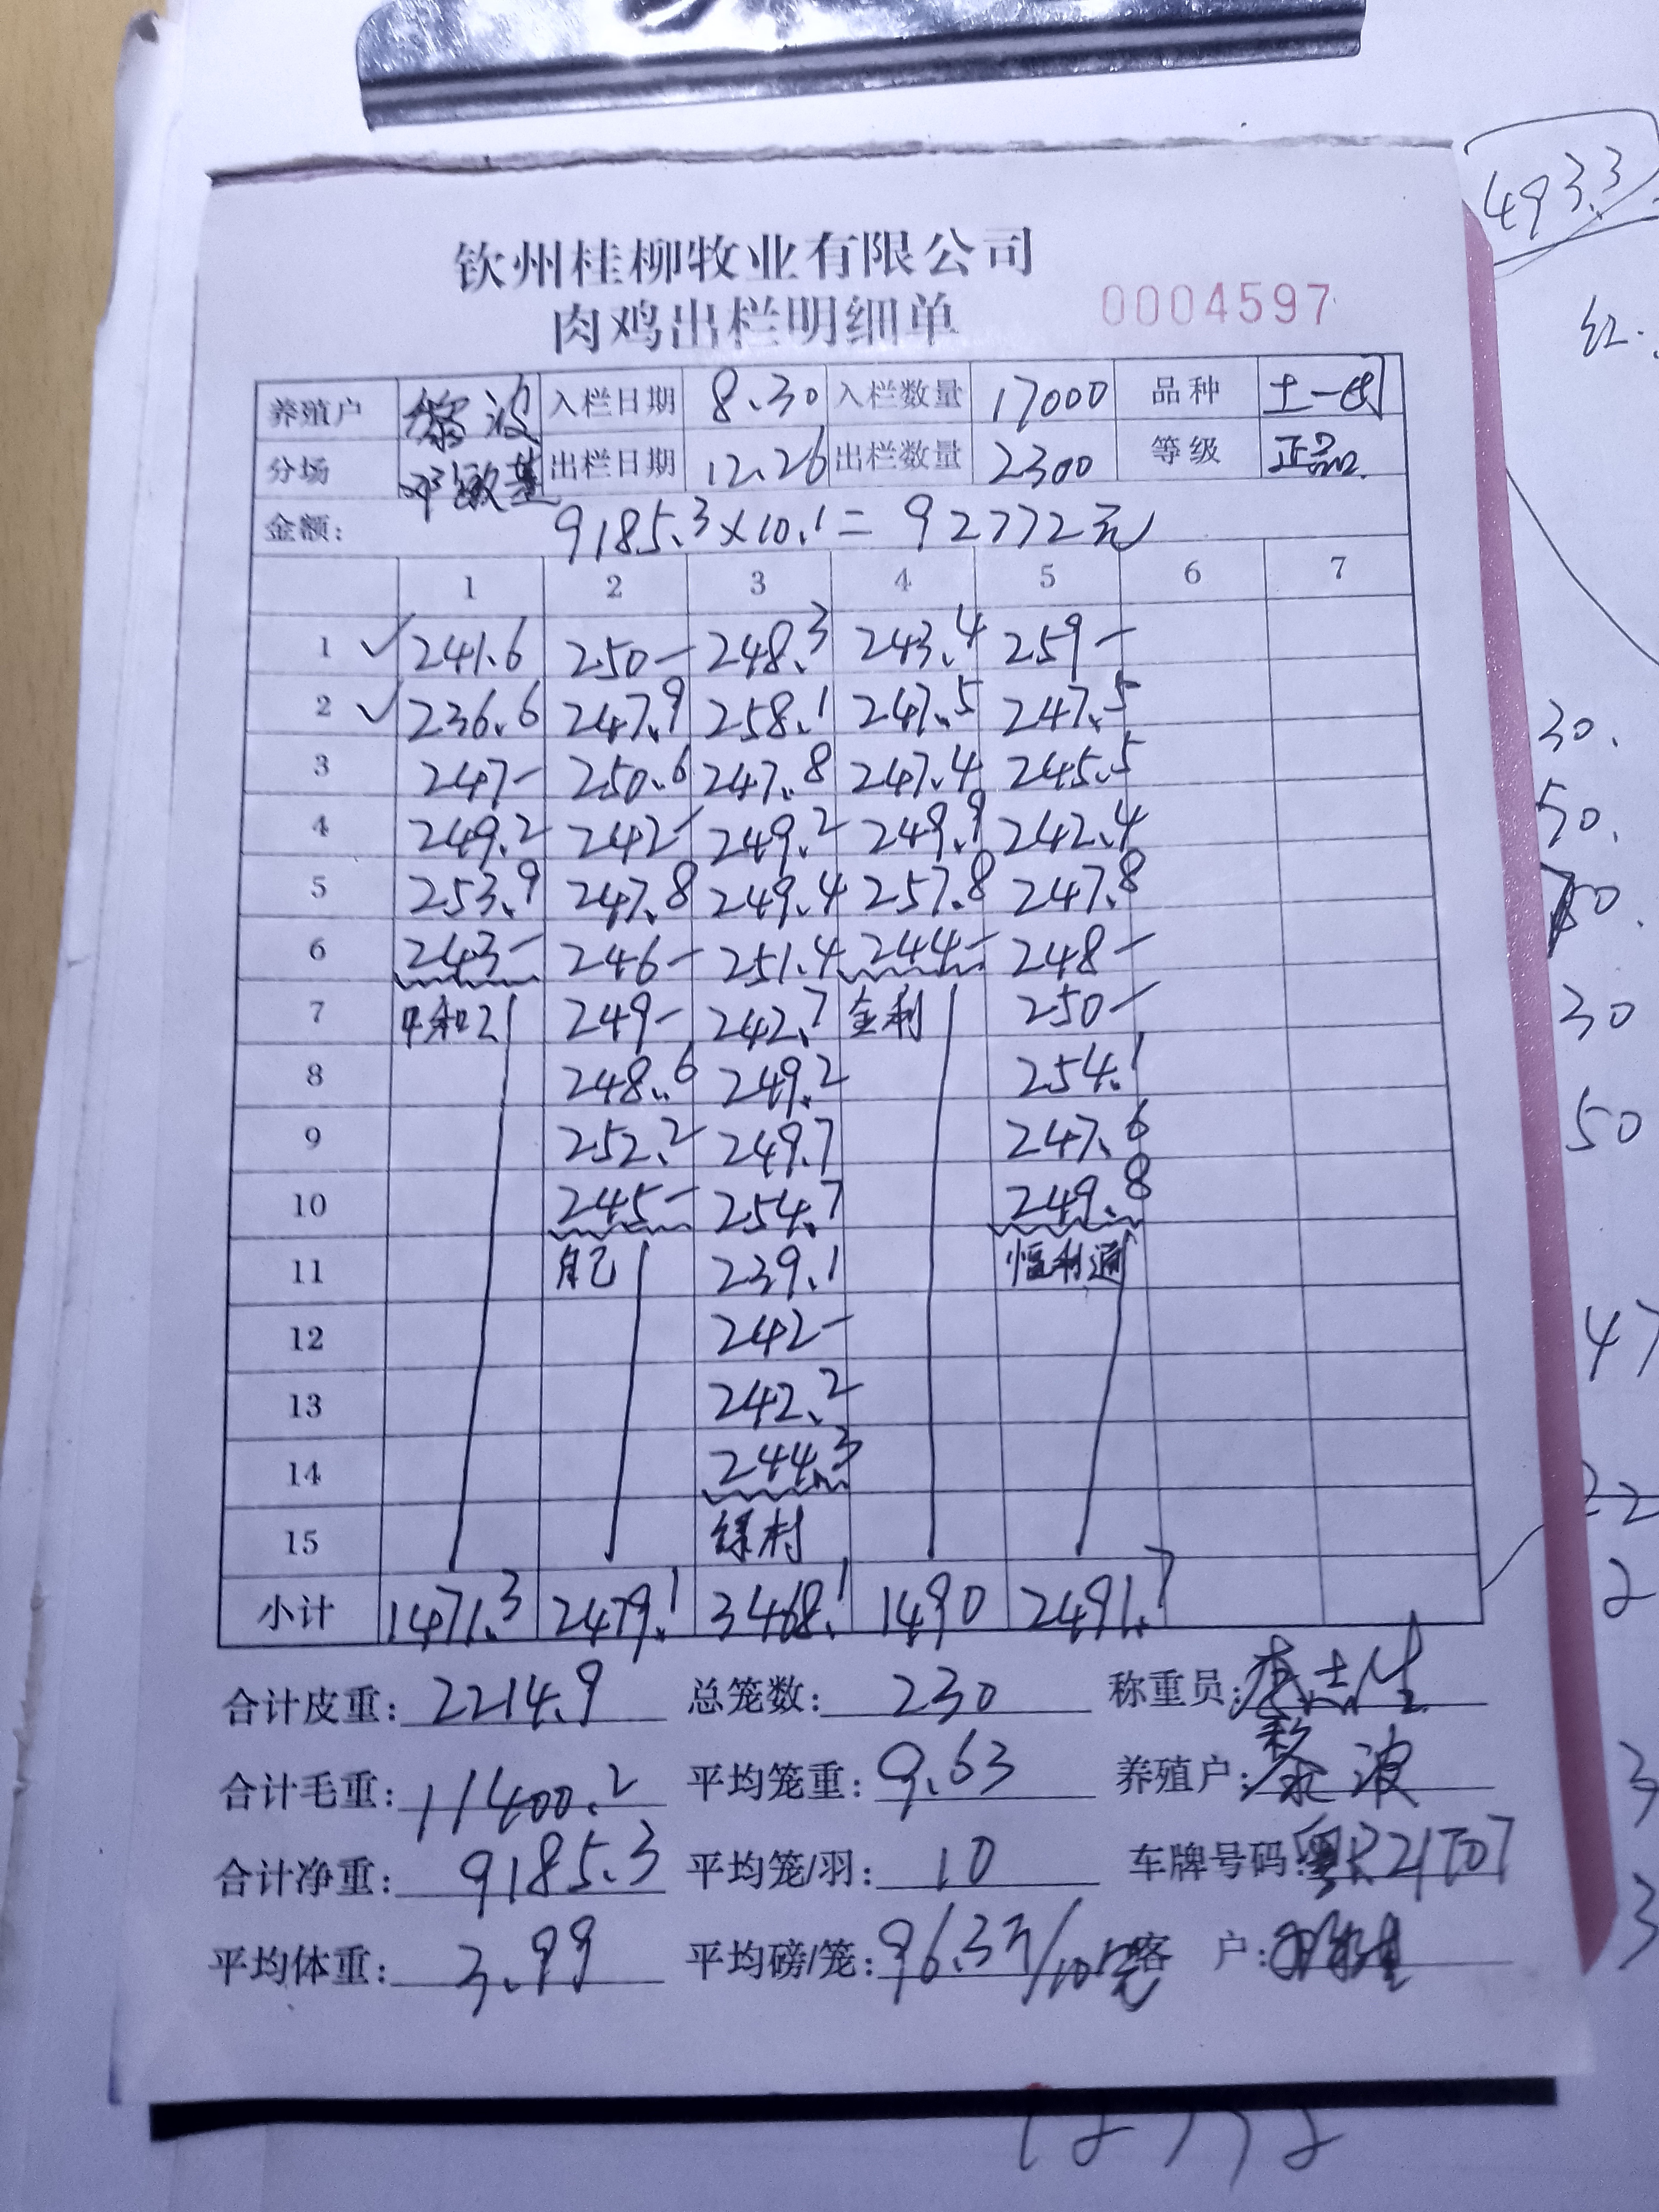 493.3
钦州桂柳牧业有限公司
肉鸡出栏明细单 0004597
红.
养殖户 黎波 入栏日期 8.30 入栏数量 17000 品种 土一
分场 邓敏基 出栏日期 12.26 出栏数量 2300 等级 正品
金额: 9185.3×10.1=92772元
1 2 3 4 5 6 7
1 ✓ 241.6 250- 248.3 243.4 259-
2 ✓ 236.6 247.9 258.1 247.5 247.5
30.
3 247- 250.6 247.8 247.4 245.5
4 249.2 242- 249.2 249.9 242.4
50.
5 253.9 247.8 249.4 257.8 247.8
6 243- 246- 251.4 244- 248-
7 中和2 249- 242.7 金利 250-
30
8 248.6 249.2 254.1
9 252.2 249.7 247.6
50
10 245- 254.7 249.8
11 自己 239.1 恒利通
12 242-
47
13 242.2
14 244.3
22
15 绿村
2
小计 1471.3 2479.1 3468.1 1490 2491.7
合计皮重: 2214.9 总笼数: 230 称重员:
合计毛重: 11400.2 平均笼重: 9.63 养殖户: 黎波
3
合计净重: 9185.3 平均笼/羽: 10 车牌号码: 粤R21T07
3
平均体重: 3.99 平均磅/笼: 96.3 客 户: